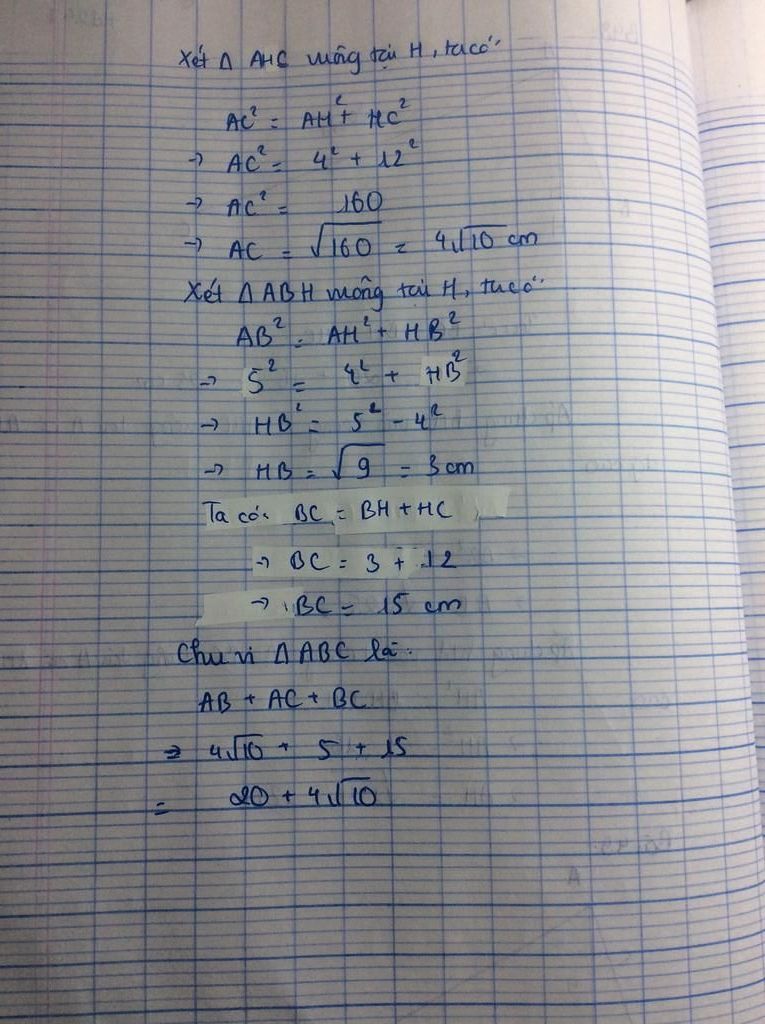 Xét Δ AHC vuông tại H, ta có:
AC² = AH² + HC²
→ AC² = 4² + 12²
→ AC² = 160
→ AC = √160 = 4√10 cm
Xét Δ ABH vuông tại H, ta có:
AB² = AH² + HB²
→ 5² = 4² + HB²
→ HB² = 5² - 4²
→ HB = √9 = 3 cm
Ta có: BC = BH + HC
→ BC = 3 + 12
→ BC = 15 cm
Chu vi Δ ABC là:
AB + AC + BC
= 4√10 + 5 + 15
= 20 + 4√10